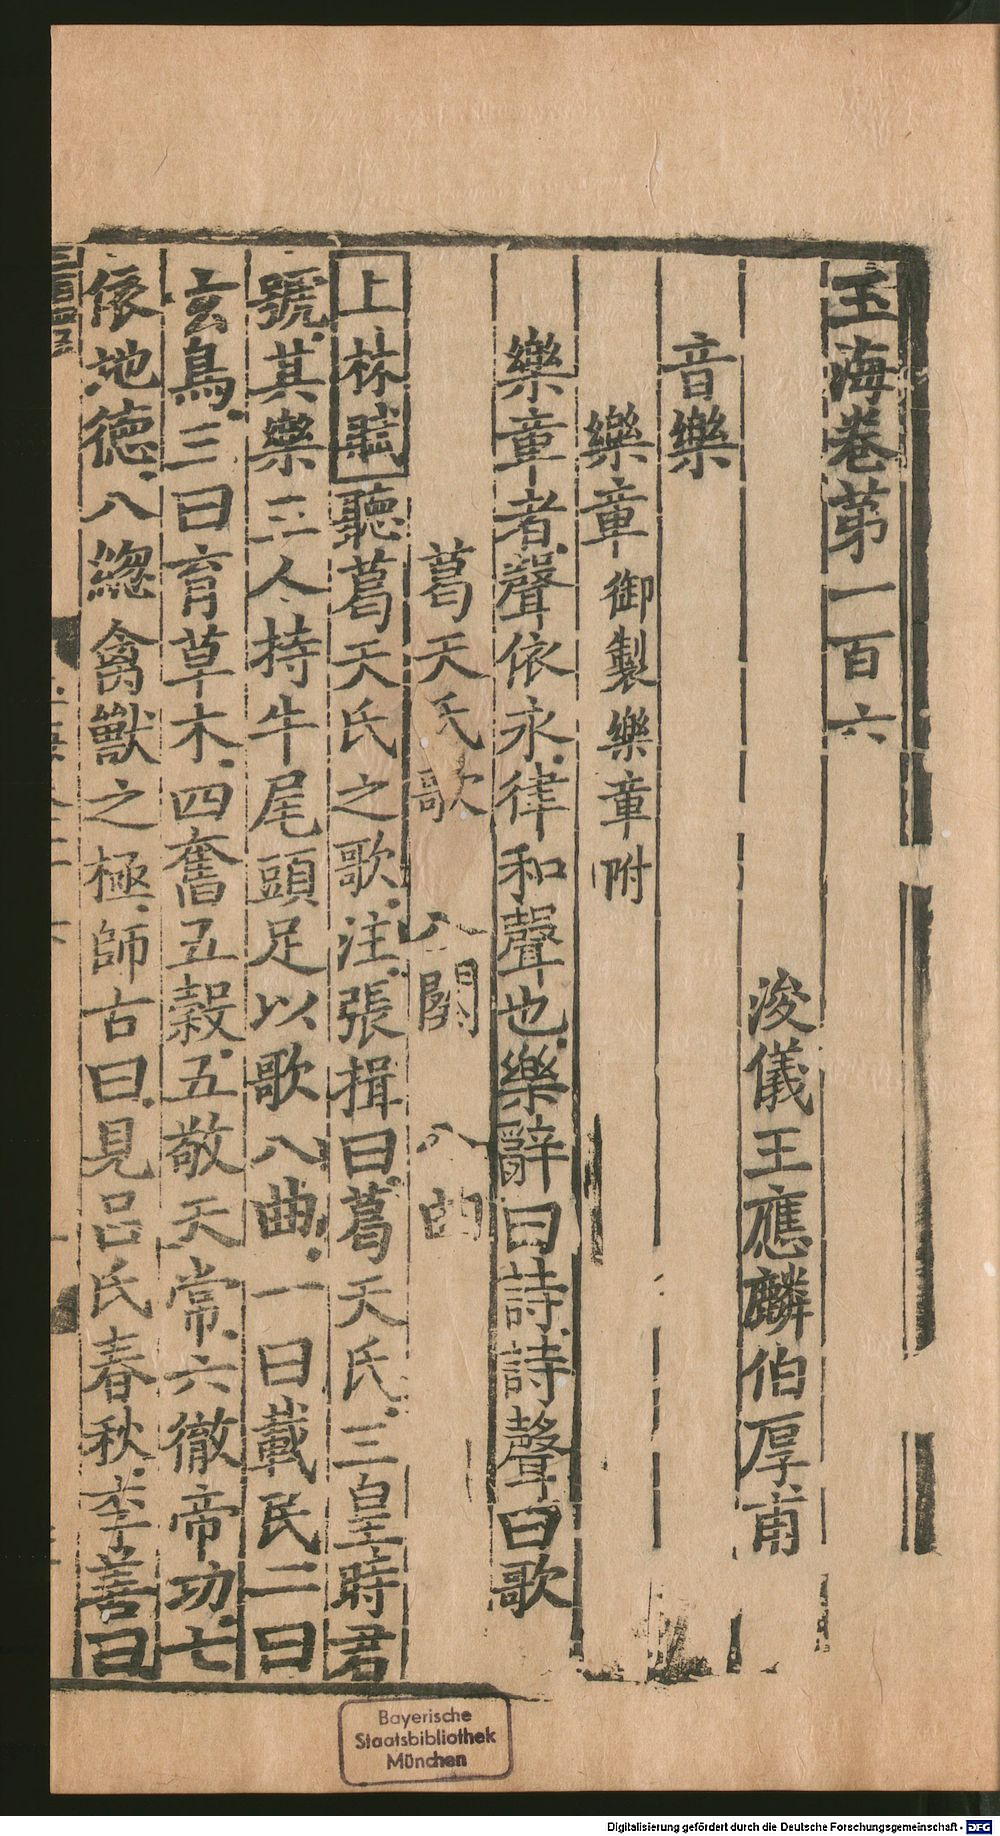 玉海卷第一百六
浚儀王應麟伯厚甫
音樂
樂章御製樂章附
樂章者聲依永律和聲也樂辭曰詩詩聲曰歌
葛天氏歌 八闋 八曲
上林賦聽葛天氏之歌注張揖曰葛天氏三皇時君
號其樂三人持牛尾頭足以歌八曲一曰載民二曰
玄鳥三曰育草木四奮五穀五敬天常六徹帝功七
依地德八緫禽獸之極師古曰見呂氏春秋李善曰
Bayerische
Staatsbibliothek
München
Digitalisierung gefördert durch die Deutsche Forschungsgemeinschaft - DFG